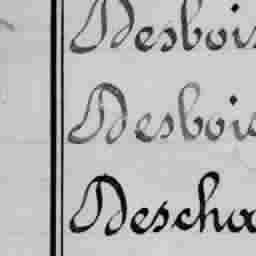 Desbois
Desbois
Descha